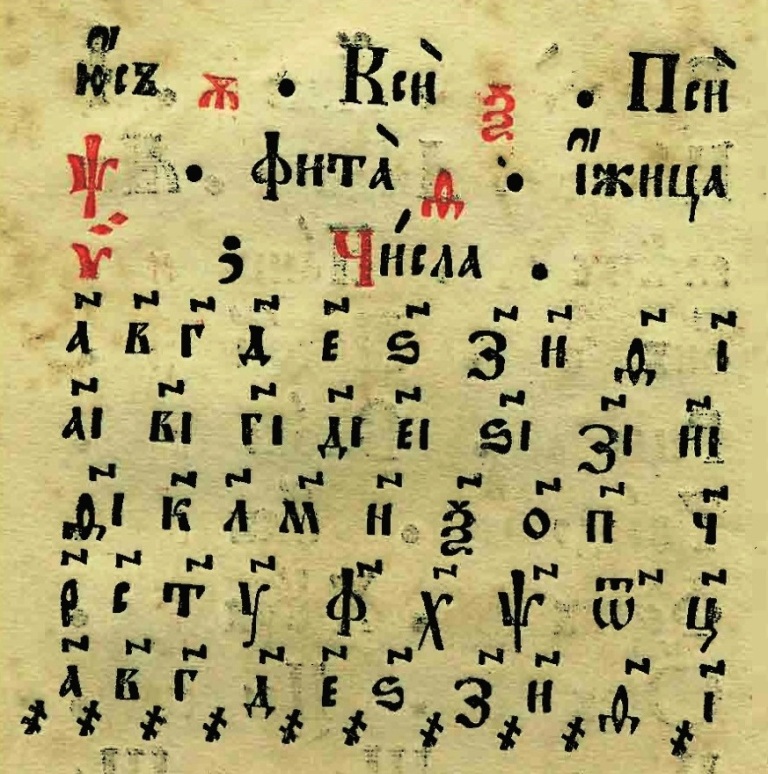 ю҆съ ѫ • Ксѝ ѯ • Псѝ
ѱ • фита̀ ѳ • і҆жица
ѵ ; Чи́сла •
а҃ в҃ г҃ д҃ е҃ ѕ҃ з҃ и҃ ѳ҃ і҃
а҃і в҃і г҃і д҃і е҃і ѕ҃і з҃і и҃і
ѳ҃і к҃ л҃ м҃ н҃ ѯ҃ о҃ п҃ ч҃
р҃ с҃ т҃ у҃ ф҃ х҃ ѱ҃ ѿ҃ ц҃
҂а҃ ҂в҃ ҂г҃ ҂д҃ ҂е҃ ҂ѕ҃ ҂з҃ ҂и҃ ҂ѳ҃ ҂і҃